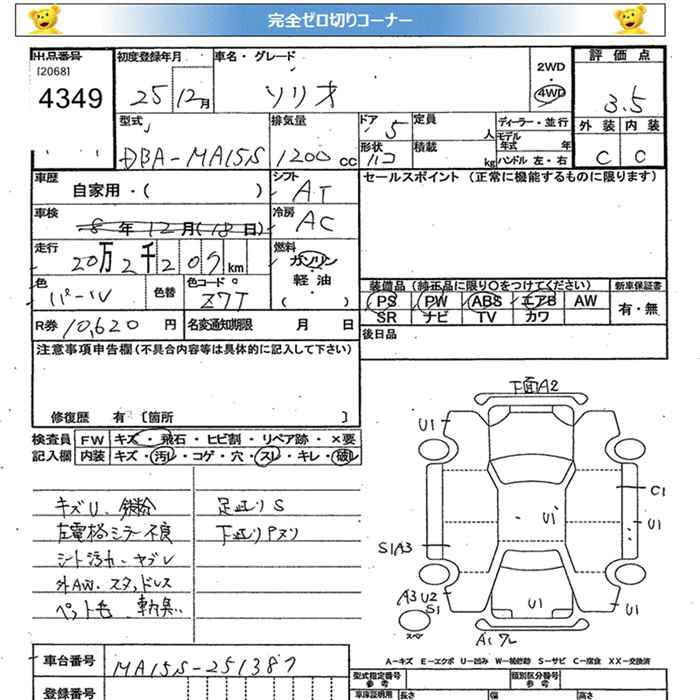 完全ゼロ切りコーナー
出品番号 初度登録年月 車名・グレード 2WD 評価点
[2068]
4349 25 12月 ソリオ 4WD 3.5
型式 排気量 ドア 5 定員 人 ディーラー・並行 外装 内装
DBA-MA15S 1200 cc 形状 ハコ 積載 kg モデル年式 年 ハンドル 左・右 C C
車歴 自家用・( ) シフト AT セールスポイント (正常に機能するものに限ります)
車検 8年12月(18日) 冷房 AC
走行 20万2千207km 燃料 ガソリン
軽油
( )
色 パール 色替 色コード Z7T 装備品 (純正品に限り○をつけてください) 新車保証書
PS PW ABS エアB AW 有・無
SR ナビ TV カワ
R券 10,620円 名変通知期限 月 日 後日品
注意事項申告欄 (不具合内容等は具体的に記入して下さい)
修復歴 有 〔箇所 〕
検査員 FW キズ・飛石・ヒビ割・リペア跡・×要
記入欄 内装 キズ・汚れ・コゲ・穴・スレ・キレ・破れ
キズU、鉄粉 足廻りS
左電格ミラー不良 下廻りPヌリ
シート汚れ・ヤブレ
外AW、スタッドレス
ペット毛
下面A2
U1
C1
U1
U1
S1A3
A3 U2
S1
U1
U1
スペア
車台番号 MA15S-251387
登録番号
A-キズ E-エクボ U-凹み W-補修跡 S-サビ C-腐食 XX-交換済
型式指定番号 参考 類別区分番号 参考
車庫証明用 長さ 幅 高さ